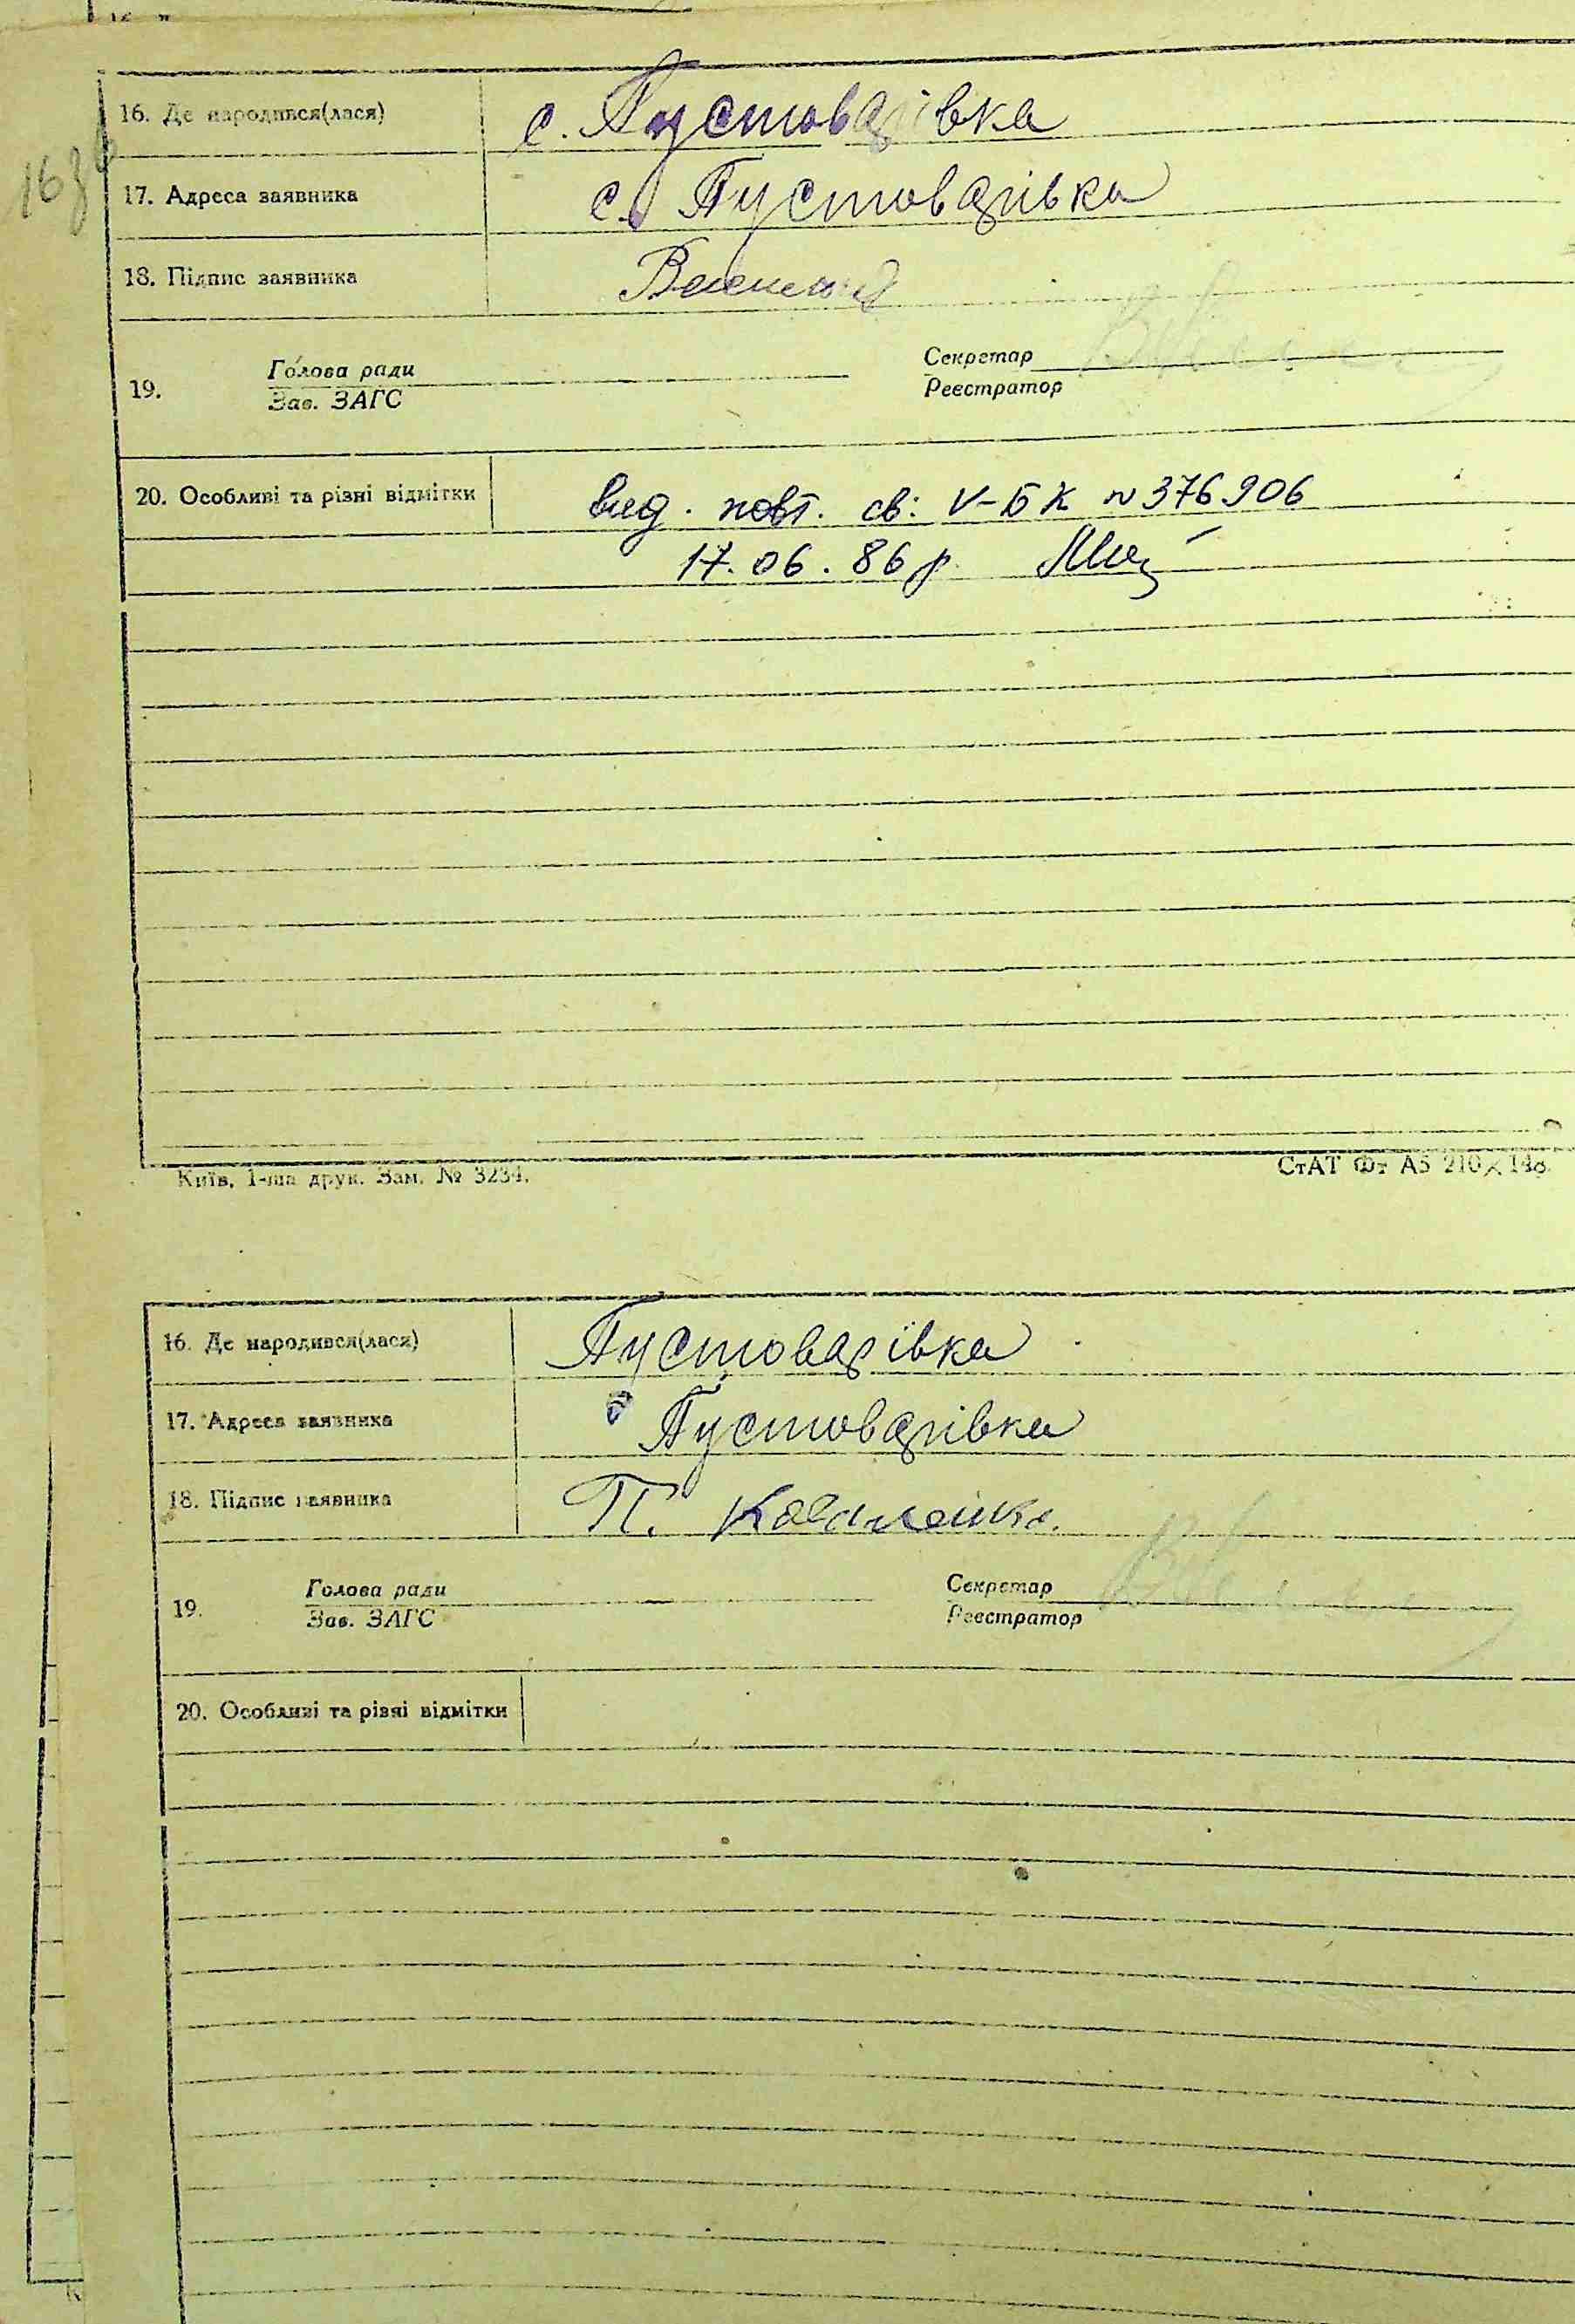 16. Де народився(лася) с. Пустоварівка
17. Адреса заявника с. Пустоварівка
18. Підпис заявника
19. Голова ради Секретар
Зав. ЗАГС Реєстратор
20. Особливі та різні відмітки вид. повт. св: V-БК N 376906
17.06.86 р.
Київ, 1-ша друк. Зам. № 3234.
СтАТ Фт А5 210×148.
16. Де народився(лася) Пустоварівка
17. Адреса заявника Пустоварівка
18. Підпис заявника П. Коваленко.
19. Голова ради Секретар
Зав. ЗАГС Реєстратор
20. Особливі та різні відмітки